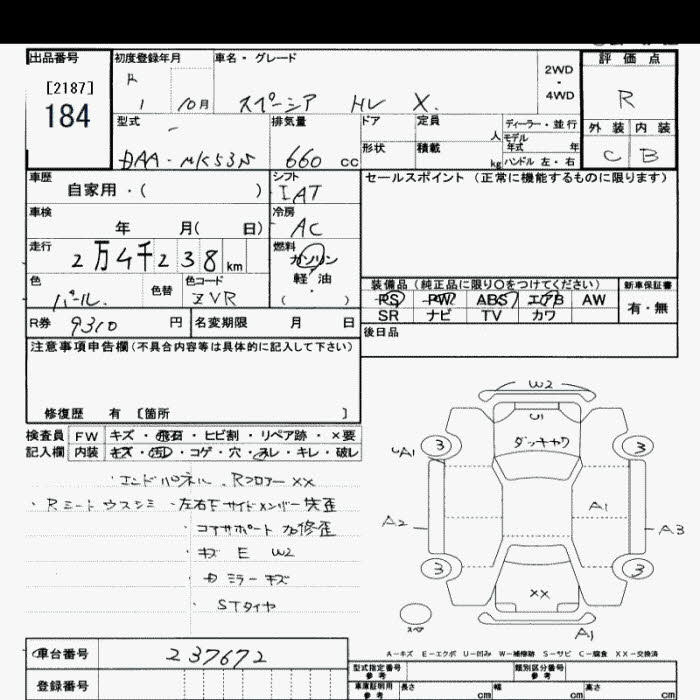 出品番号 初度登録年月 車名・グレード 評価点
[2187] R 2WD・4WD R
184 1 10月 スペーシア HV X.
型式 排気量 ドア 定員 人 ディーラー・並行 外装 内装
モデル年式 年
DAA-MK53S 660 cc 形状 積載 kg ハンドル 左・右 C B
車歴 自家用・( ) シフト IAT セールスポイント (正常に機能するものに限ります)
車検 年 月( 日) 冷房 AC
走行 2万4千238km 燃料 ガソリン
軽・油
( )
色 パール. 色替 色コード ZVR 装備品 (純正品に限り○をつけてください) 新車保証書
PS PW ABS エアB AW 有・無
SR ナビ TV カワ
R券 9310 円 名変期限 月 日 後日品
注意事項申告欄 (不具合内容等は具体的に記入して下さい)
修復歴 有 [箇所 ]
検査員 FW キズ・飛石・ヒビ割・リペア跡・×要
記入欄 内装 キズ・汚れ・コゲ・穴・スレ・キレ・破レ
・エンドパネル、Rフロアー XX
・左右Fサイドメンバー
・コアサポート
・キズ E W2
ミラーキズ
・STタイヤ
W2
U1
ダッキャク
A1
3 3
A2 A1 A3
3 3
XX
スペア
A1
A-キズ E-エクボ U-凹み W-補修跡 S-サビ C-腐食 XX-交換済
車台番号 237672
型式指定番号 参考 類別区分番号 参考
登録番号 車庫証明用 参考 長さ cm 幅 cm 高さ cm